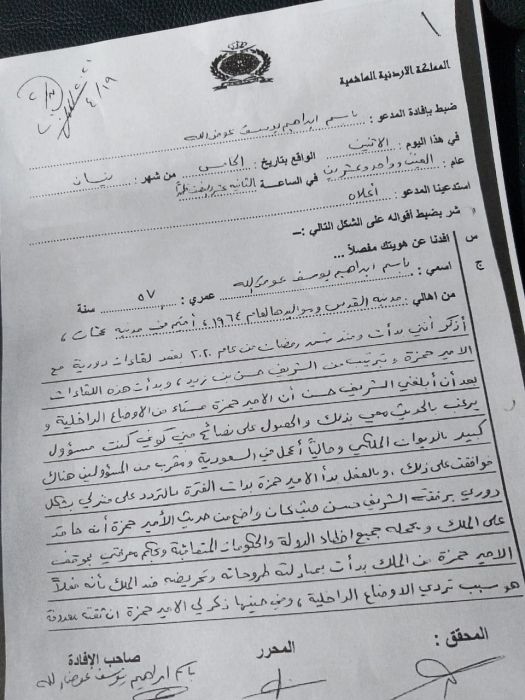 ١
٤/١٩
المملكة الأردنية الهاشمية
ضبط بإفادة المدعو : باسم ابراهيم يوسف عوض الله
في هذا اليوم : الاثنين الواقع بتاريخ : الخامس من شهر : نيسان
عام : الفين وواحد وعشرين في الساعة الثانية عشر ونصف ظهراً
استدعينا المدعو : أعلاه
شر بضبط أقواله على الشكل التالي :–
س افدنا عن هويتك مفصلاً ...
ج اسمي : باسم ابراهيم يوسف عوض الله عمري : ٥٧ سنة
من اهالي : مدينة القدس ومواليدها لعام ١٩٦٤ ، أقيم في مدينة عمان ،
أذكر أنني بدأت ومنذ شهر رمضان من عام ٢٠٢٠ بعقد لقاءات دورية مع
الامير حمزة وبترتيب من الشريف حسن بن زيد ، وبدأت هذه اللقاءات
بعد أن أبلغني الشريف حسن أن الامير حمزة مستاء من الأوضاع الداخلية و
يرغب بالحديث معي بذلك والحصول على نصائح مني كوني كنت مسؤول
كبير بالديوان الملكي وحالياً أعمل في السعودية ومقرب من المسؤولين هناك
فوافقت على ذلك ، وبالفعل بدأ الامير حمزة بدات الفترة بالتردد على منزلي بشكل
دوري برفقة الشريف حسن حيث كان واضح من حديث الأمير حمزة أنه حاقد
على الملك ويحمله جميع اخطاء الدولة والحكومات المتعاقبة وبحكم معرفتي بموقف
الامير حمزة من الملك بدأت بمبادلته طروحاته وتحريضه ضد الملك بأنه فعلاً
هو سبب تردي الاوضاع الداخلية ، وفي حينها ذكر لي الامير حمزة ان ثقته معدومة
المحقق : المحرر صاحب الإفادة
باسم ابراهيم يوسف عوض الله